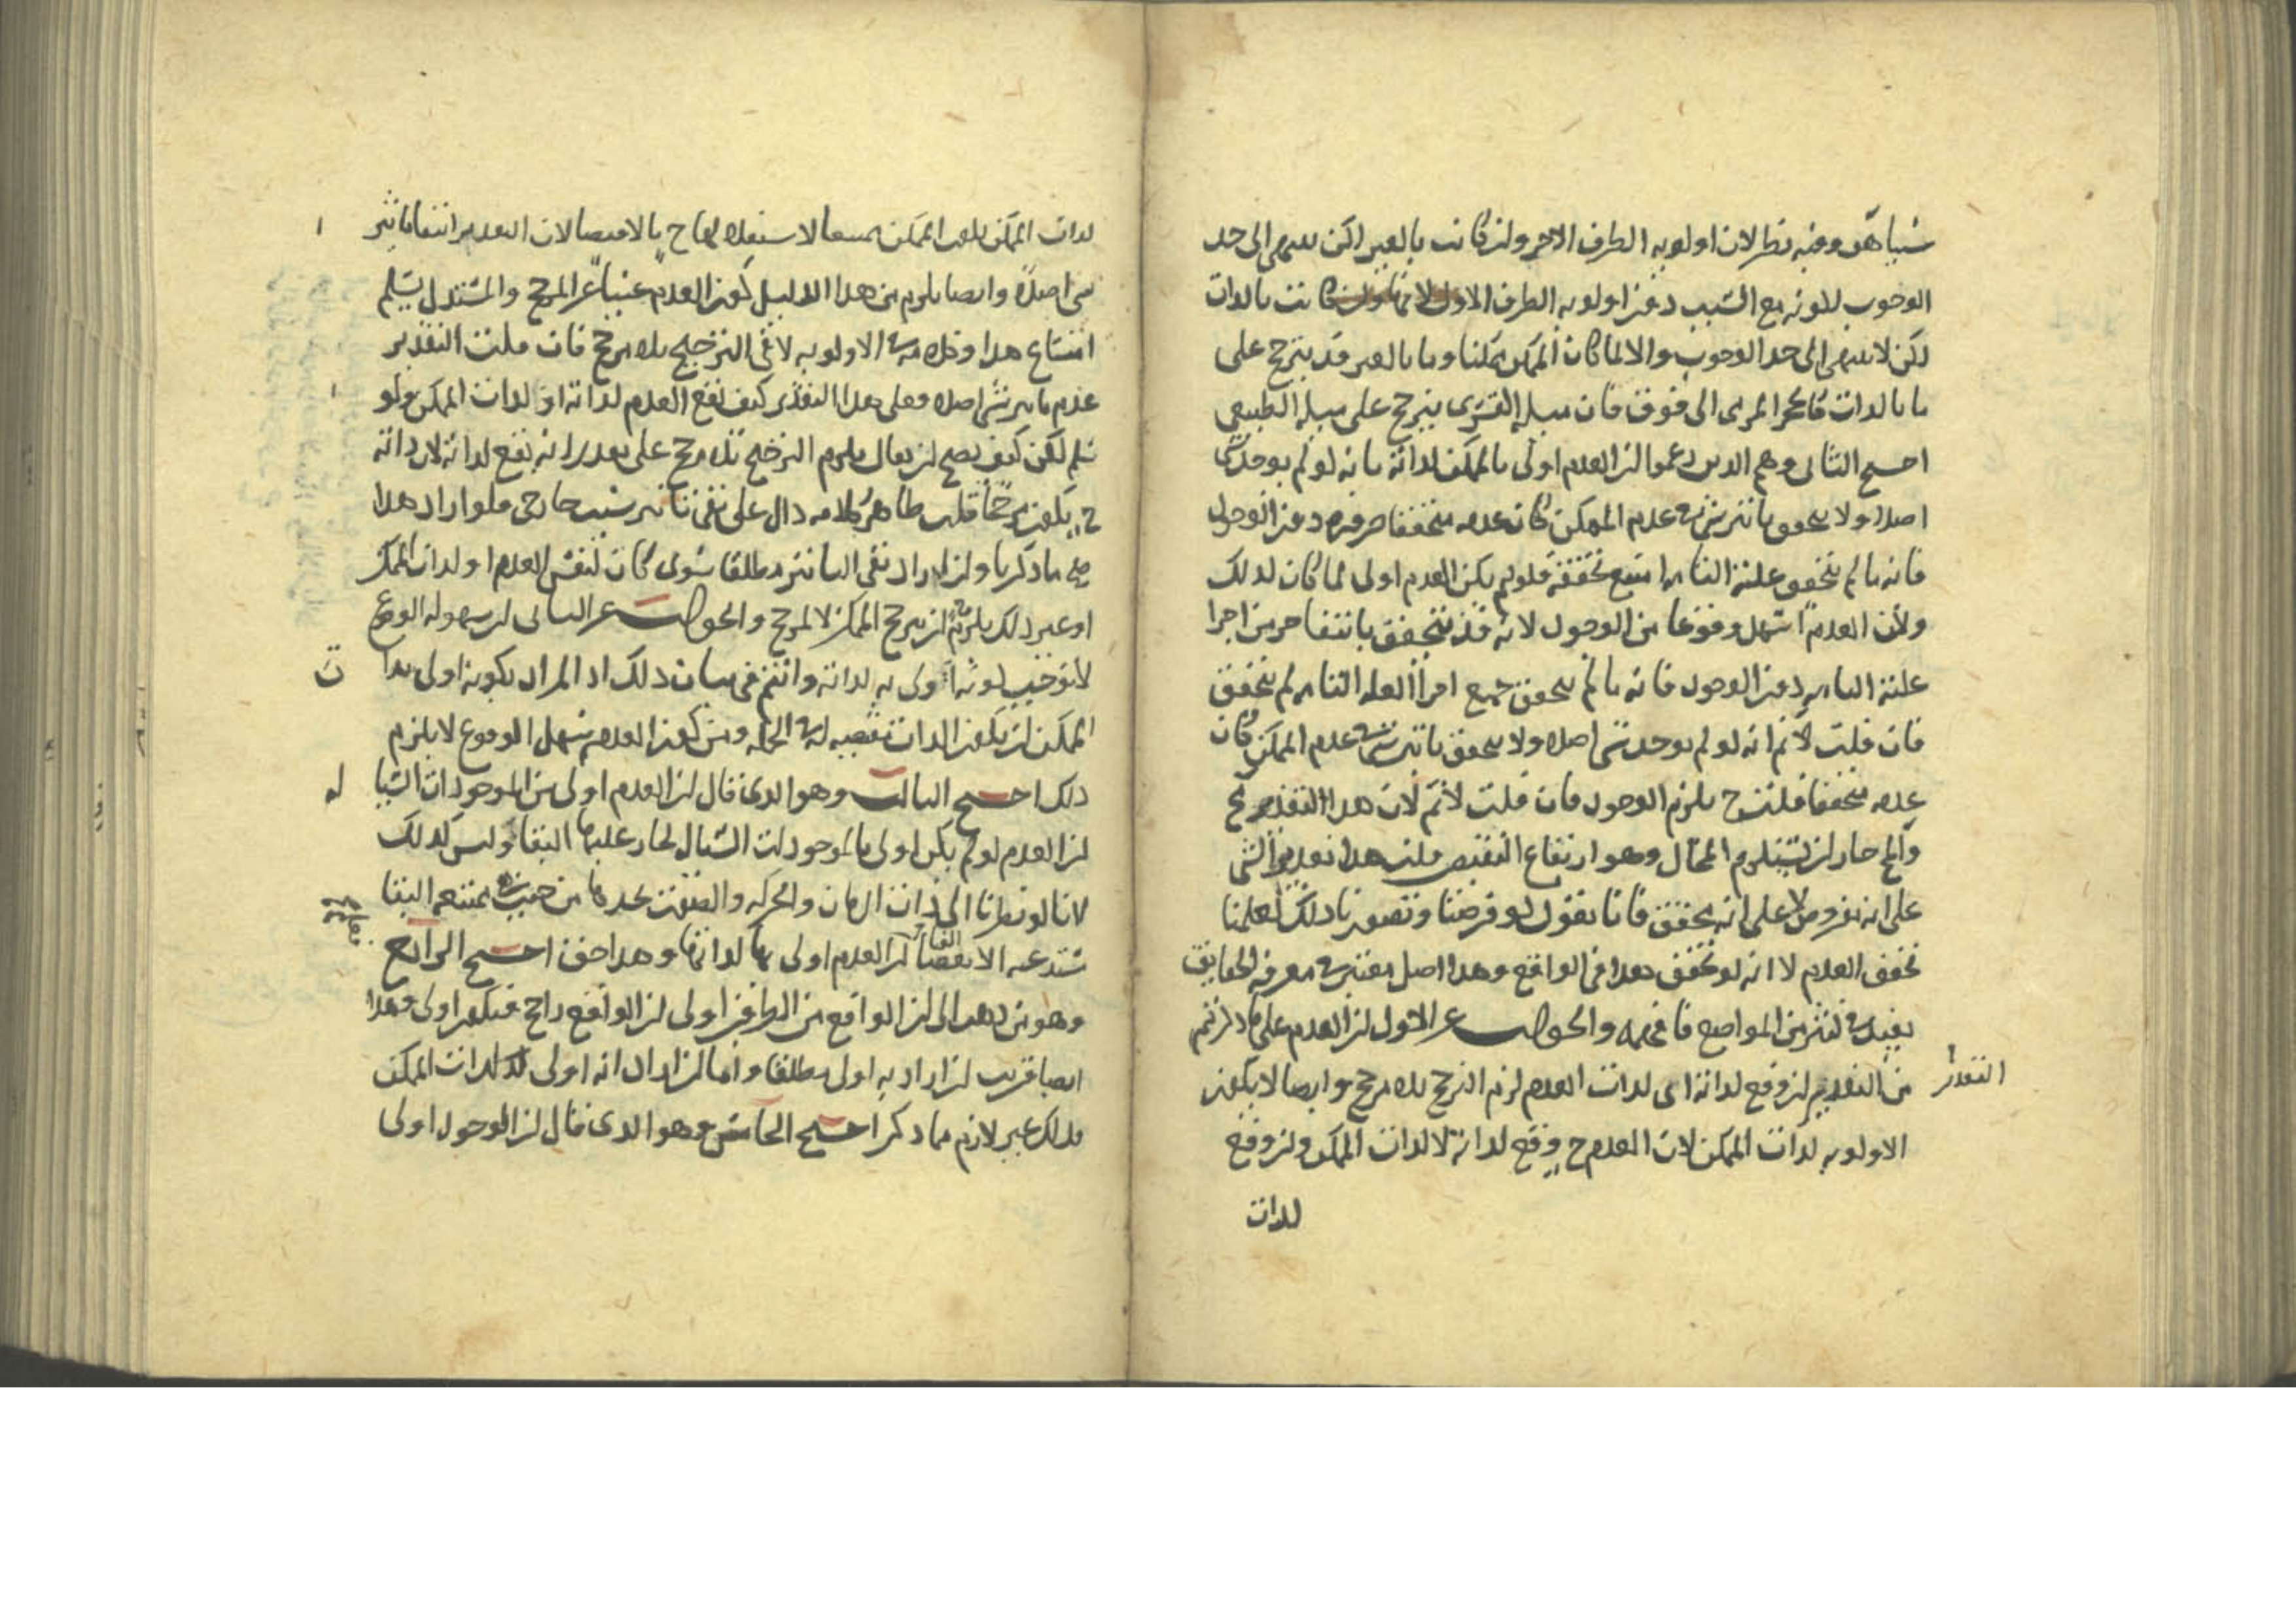 سببا هف وفيه نظر لان اولويه الطرف الاخر وان كانت بالغير لكن ينتهي الى حد
الوجوب لكونه مع السبب دون اولويه الطرف الاول لانها وان كانت بالذات
لكن لا ينتهي الى حد الوجوب والا لما كان الممكن ممكنا وما بالغير قد يترجح على
ما بالذات كالحجر المرمى الى فوق فان ميله القسرى يترجح على ميله الطبيعي
احتج الثانى وهم الذين زعموا ان العدم اولى بالممكن لذاته بانه لو لم يوجد شى
اصلا ولا يتحقق تاثير شى فى عدم الممكن كان عدمه متحققا ضرورة دون الوجود
فانه ما لم يتحقق علته التامه امتنع تحققه فلو لم يكن العدم اولى لما كان كذلك
ولان العدم اسهل وقوعا من الوجود لانه قد يتحقق بانتفا جز من اجزا
علته التامه دون الوجود فانه ما لم يتحقق جميع اجزا العله التامه لم يتحقق
فان قلت لانم انه لو لم يوجد شى اصلا ولا يتحقق تاثير شى فى عدم الممكن كان
عدمه متحققا قلت ح يلزم الوجود فان قلت لانم لان هذا التقدير مح
والمح جاز ان يستلزم المحال وهو ارتفاع النقيضين قلت هذا تقدير الشى
على انه مفروض لا على انه محقق فانا نقول لو فرضنا وتصورنا ذلك لعلمنا
تحقق العدم لا انه لو تحقق هذا فى الواقع وهذا اصل معتبر فى معرفه الحقايق
يفيد فى كثير من المواضع فافهمه والجواب عن الاول ان العدم على ما ذكرتم
من التقدير ان وقع لذاته اى لذات العدم لزم الترجح بلا مرجح وايضا لا يكون
التقدير
الاولويه لذات الممكن لان العدم ح وقع لذاته لا لذات الممكن وان وقع
لذات
لذات الممكن يلزم الممكن ممتنعا لا ح بالاقتضا لان التقدير انتفا تاثير
شى اصلا وايضا يلزم من هذا الدليل كون العدم غنيا عن المرجح والمستدل يسلم
امتناع هذا وكلامه فى الاولويه لا فى الترجيح بلا مرجح فان قلت التقدير
عدم تاثير شى اصلا وعلى هذا التقدير كيف يقع العدم لذاته او لذات الممكن ولو
سلم لكن كيف يصح ان يقال يلزم الترجيح بلا مرجح على تقدير انه يقع لذاته لان ذاته
ح يكون مرجحا قلت ظاهر كلامه دال على نفى تاثير سبب خارجى فلو اراد هذا
صح ما ذكرنا وان اراد نفى التاثير مطلقا سوى كان لنفس العدم او لذات الممكن
او غير ذلك يلزمه ان يترجح الممكن لا لمرجح والجواب عن الثانى ان سهولة الوقوع
لا توجب كونه اولى به لذاته وانتم فى بيان ذلك اذ المراد بكونه اولى بذات
الممكن ان يكون الذات مقتضيه له فى الجمله ومن كون العدم سهل الوقوع لا يلزم
ذلك احتج الثالث وهو الذى قال ان العدم اولى من الموجودات السيا
له
ان العدم لو لم يكن اولى بالموجودات السياله لجاز عليها البقا وليس كذلك
لانا لو نظرنا الى ذات الزمان والحركه والصوت نجدها من حيث هى يمتنع البقا
تستدعى الانقضا فان العدم اولى بها لذاتها وهذا حق احتج الرابع
وهو من ذهب الى ان الواقع من الطرفين اولى ان الواقع راجح فيكون اولى وهذا
ايضا قريب ان اراد به اولى مطلقا واما ان اراد انه اولى لذات الممكن
فذلك غير لازم مما ذكر احتج الخامس وهو الذى قال ان الوجود اولى